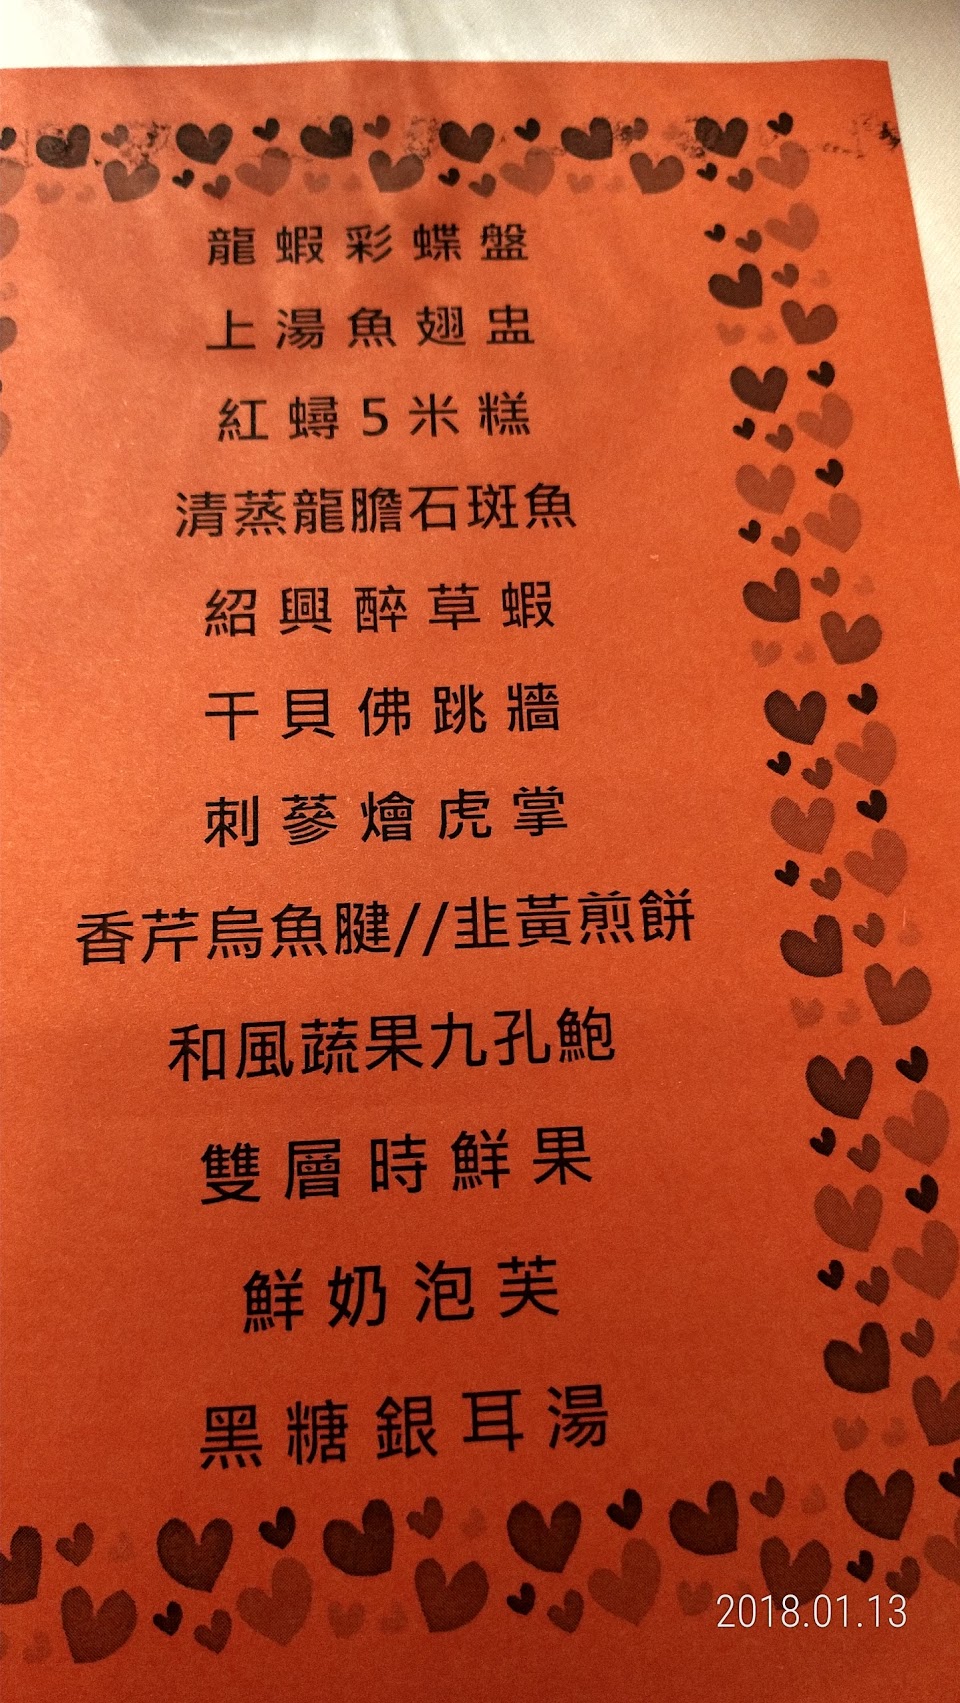 龍蝦彩蝶盤
上湯魚翅盅
紅蟳5米糕
清蒸龍膽石斑魚
紹興醉草蝦
干貝佛跳牆
刺蔘燴虎掌
香芹烏魚腱//韭黃煎餅
和風蔬果九孔鮑
雙層時鮮果
鮮奶泡芙
黑糖銀耳湯
2018.01.13